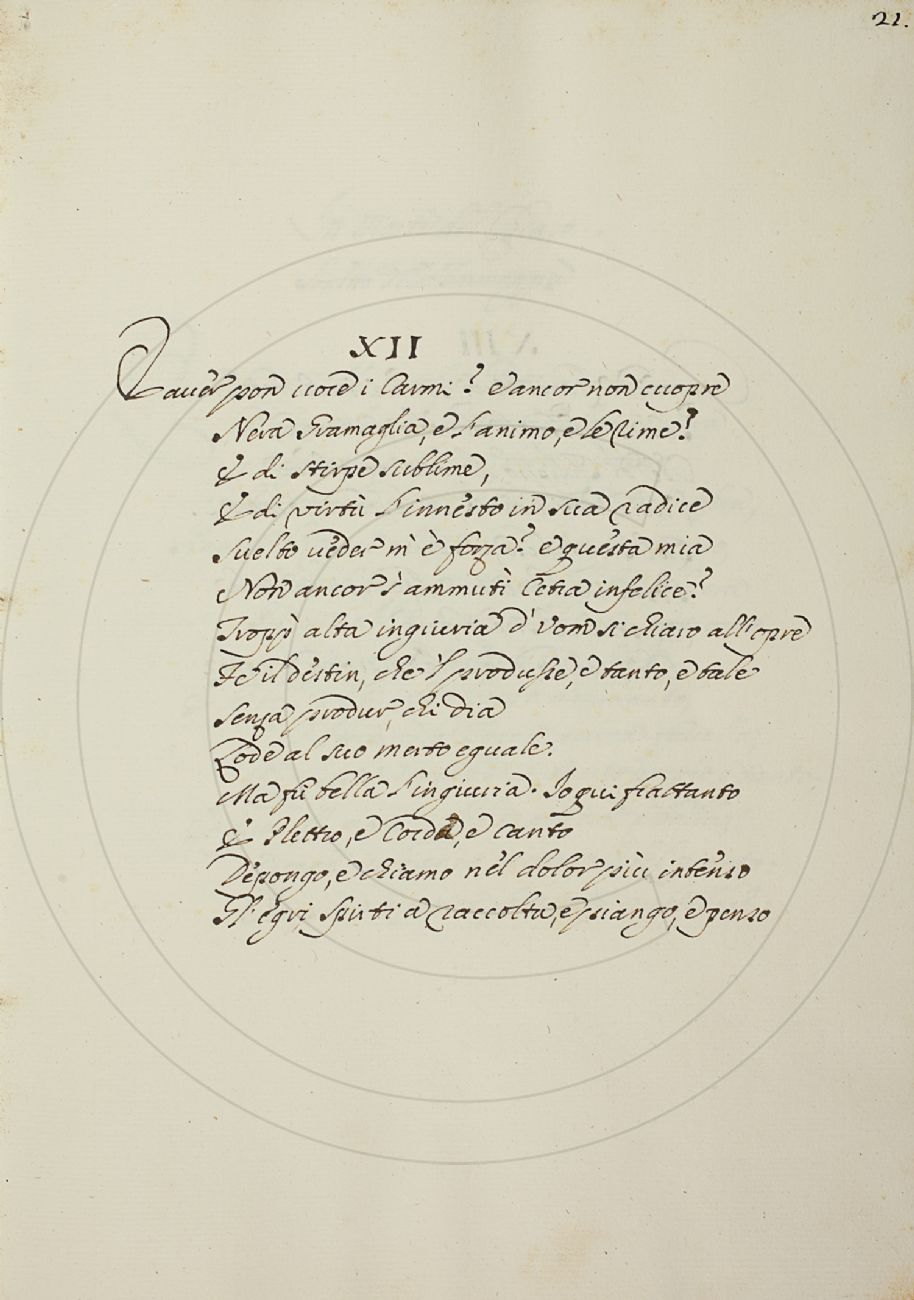 21.
XII
E aver pon voce i Carmi? e ancor non cuopre
Nera Gramaglia, e l'animo, e le rime?
E di stirpe sublime,
E di virtù l'innesto in sua radice
Svelto veder m'è forza? e questa mia
Non ancor s'ammutì Cetra infelice?
Tropp' alta ingiuria d'Vom sì chiaro all'opre
Fe il destin, che 'l produsse, e tanto, e tale
senza produr, chi dia
Lode al suo merto eguale.
Ma fu bella l'ingiuria. Io qui frattanto
E Plettro, e Corda, e canto
Depongo, e chiamo nel dolor più intenso
Gl'egri spirti a raccolta, e piango, e penso